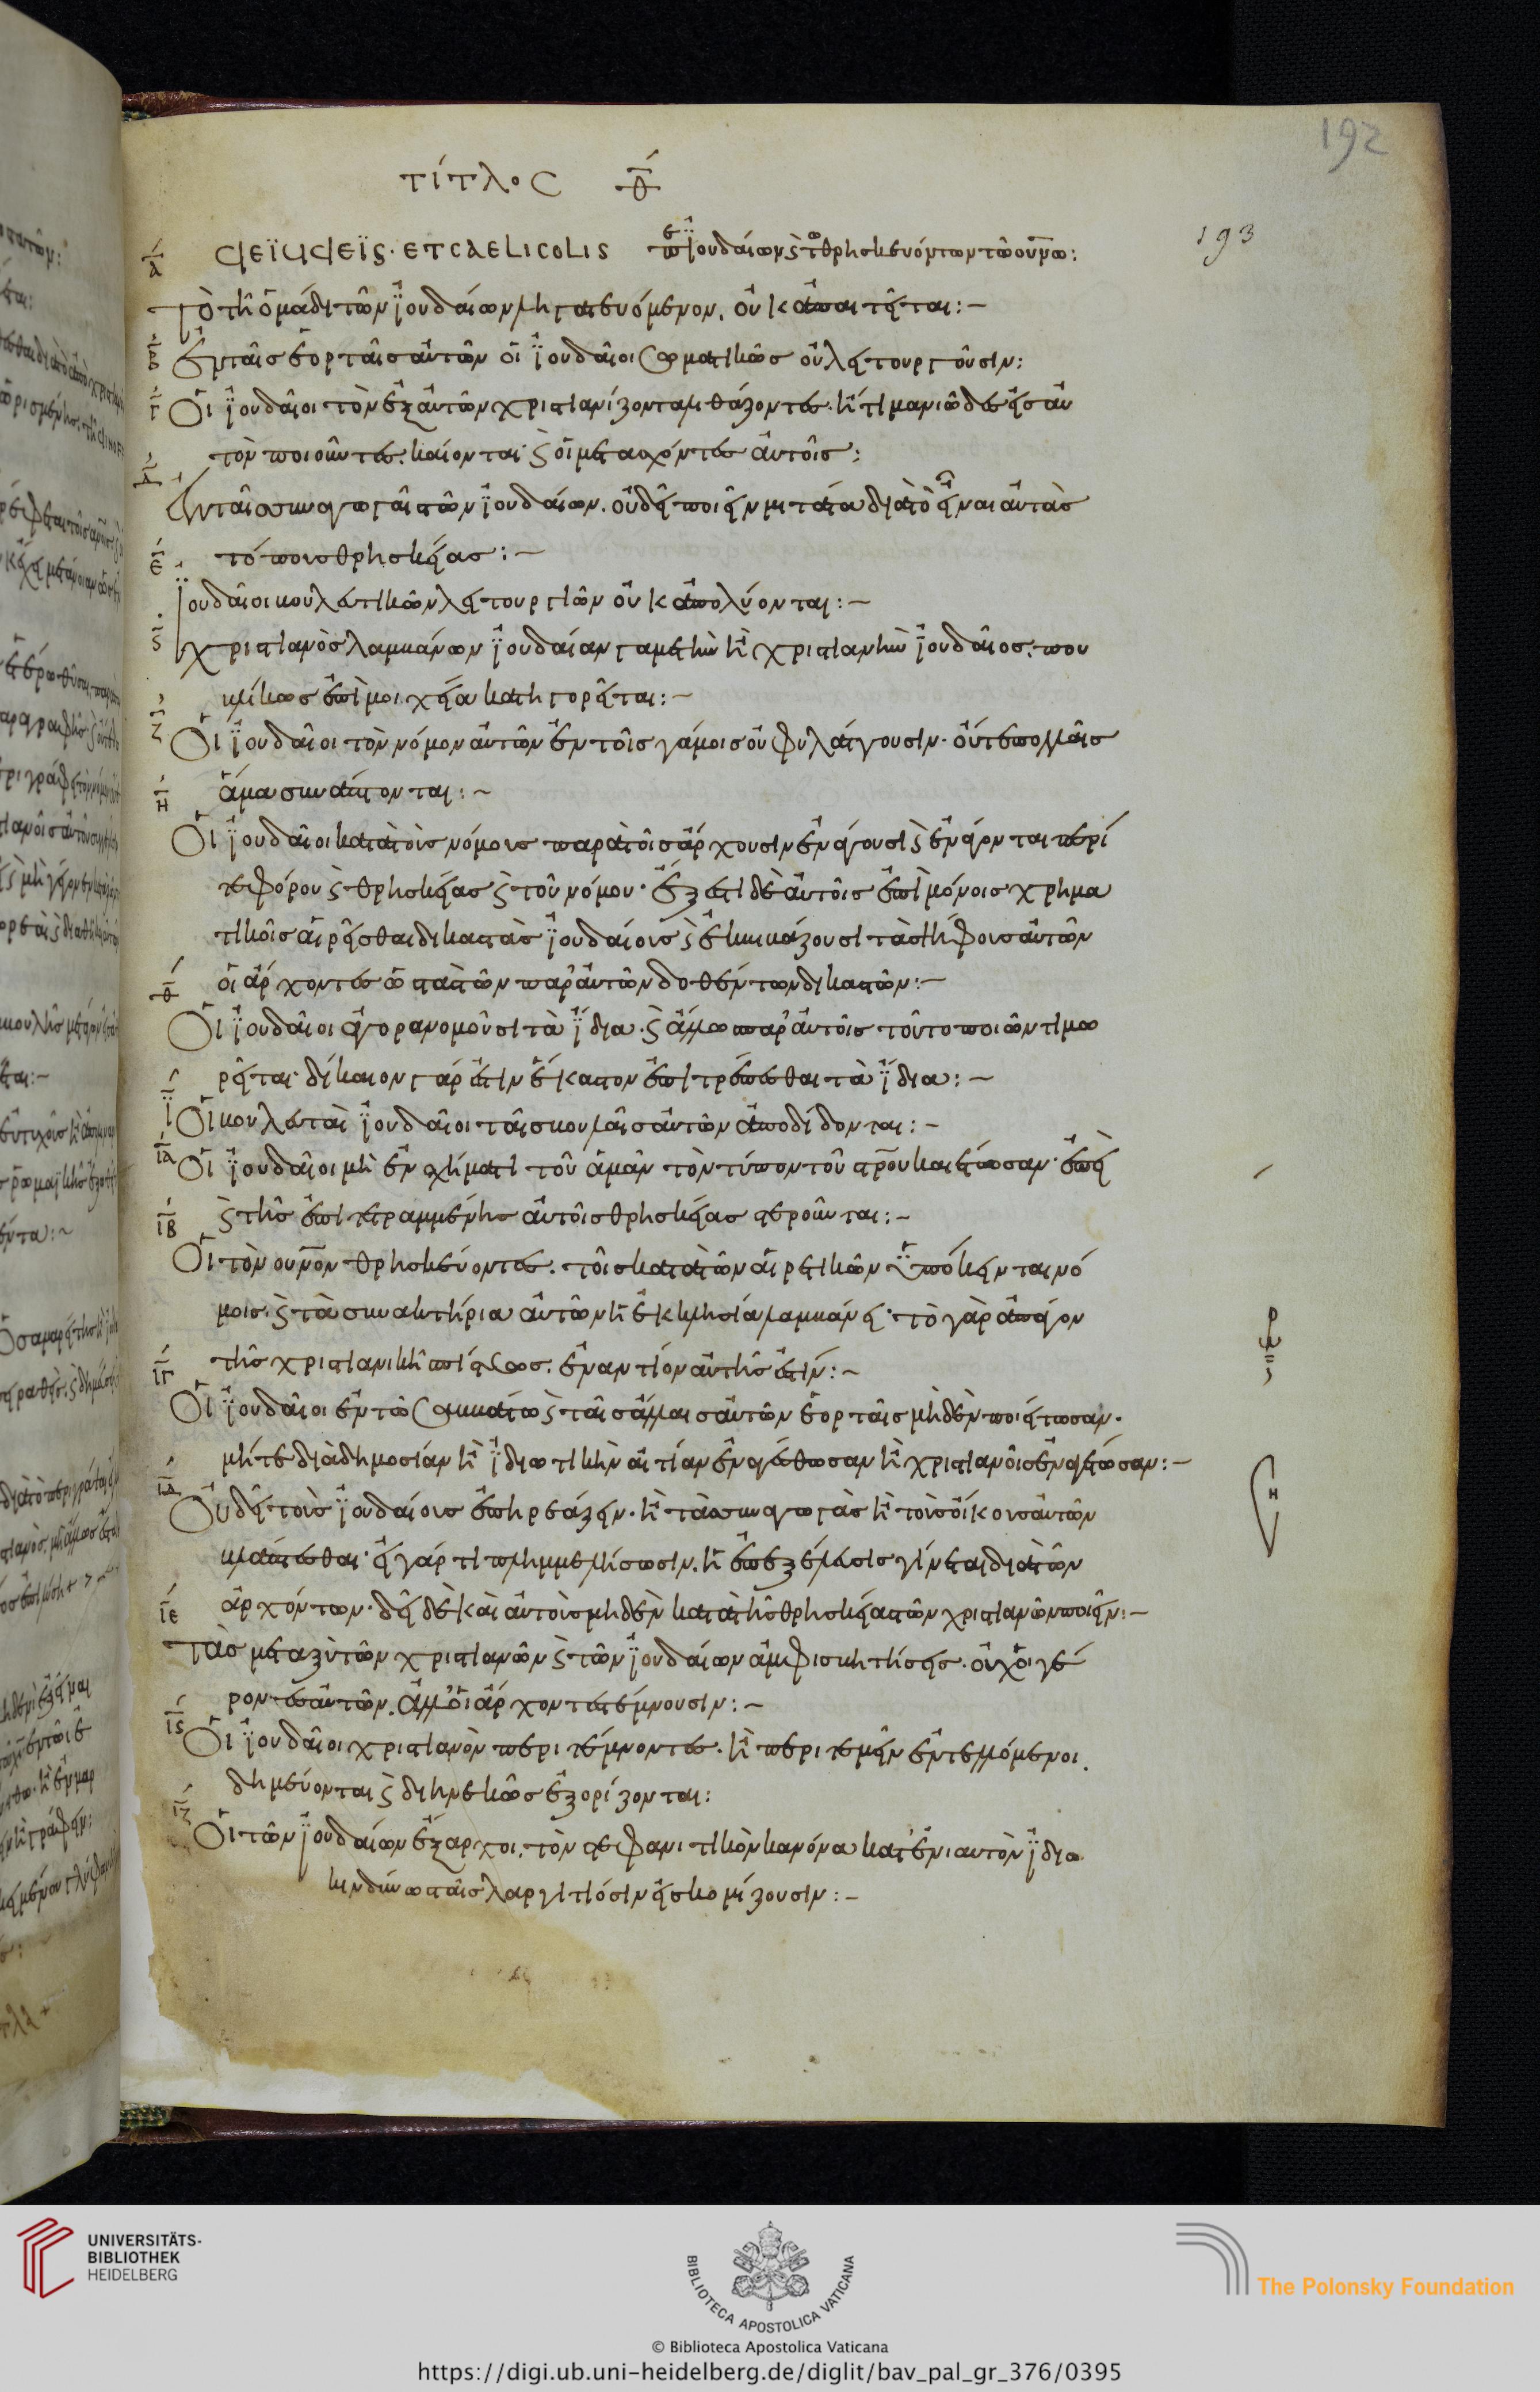 192
τίτλος θ
193
α DE ΪUDEΪS · ET CAELICOLIS περὶ ϊουδαίων ϗ τῶν θρησκευόντων τῶ οὐνῶ:
Τὸ τῆ ὁμάδι τῶν ϊουδαίων μὴ πιστευόμενον, οὐκ ἀπαιτεῖται:~
β Ἐν ταῖς ἑορταῖς αὐτῶν οἱ ϊουδαῖοι σωματικῶς οὐ λειτουργοῦσιν:
γ Οἱ ϊουδαῖοι τὸν ἐξ αὐτῶν χριστιανίζοντα λιθάζοντες. ἤ τι μανιῶδες εἰς αὐ
τὸν ποιοῦντες. καίονται· ϗ οἱ μετασχόντες αὐτοῖς:
δ Ἐν ταῖς συναγωγαῖς τῶν ϊουδαίων. οὐ δεῖ ποιεῖν μιτάτα διὰ τὸ εἶναι αὐτὰς
τόπους θρησκείας:~
ε ϊουδαῖοι βουλευτικῶν λειτουργιῶν οὐκ ἀπολύονται:~
ϛ χριστιανὸς λαμβάνων ϊουδαίαν γαμετὴν ἢ χριστιανὴν ϊουδαῖος. που
βλίκως ἐπὶ μοιχεία κατηγορεῖται:~
ζ Οἱ ϊουδαῖοι τὸν νόμον αὐτῶν ἐν τοῖς γάμοις οὐ φυλάττουσιν· οὔτε πολλαῖς
ἅμα συνάπτονται:~
η Οἱ ϊουδαῖοι κατὰ τοὺς νόμους παρὰ τοῖς ἄρχουσιν ἐνάγουσι ϗ ἐνάγονται περί
τε φόρου ϗ θρησκείας ϗ τοῦ νόμου· ἔξεστι δὲ αὐτοῖς ἐπὶ μόνοις χρημα
τικοῖς αἱρεῖσθαι δικαστὰς ϊουδαίους ϗ ἐκβιβάζουσι τὰς ψήφους αὐτῶν
οἱ ἄρχοντες ὡς τὰς τῶν παρ' αὐτῶν δοθέντων δικαστῶν:~
θ Οἱ ϊουδαῖοι ἀγορανομοῦσι τὰ ϊδια. ϗ ἄλλο παρ' αὐτοῖς τοῦτο ποιῶν τιμω
ρεῖται· δίκαιον γάρ ἐστιν ἕκαστον ἐπιτρέπεσθαι τὰ ϊδια:~
ϊ Οἱ βουλευταὶ ϊουδαῖοι ταῖς βουλαῖς αὐτῶν ἀποδίδονται:~
ια Οἱ ϊουδαῖοι μὴ ἐν σχήματι τοῦ ἀμὰν τὸν τύπον τοῦ στροῦ καιέτωσαν· ἐπεὶ
ϗ τῆς ἐπιτετραμμένης αὐτοῖς θρησκείας στεροῦνται:~
ιβ Οἱ τὸν οὐνὸν θρησκεύοντες. τοῖς κατὰ τῶν αἱρετικῶν ὑπόκεινται νό
μοις. ϗ τὰ συνακτήρια αὐτῶν ἡ ἐκκλησία λαμβάνει· τὸ γὰρ ἀπᾷον
τῆς χριστιανικῆς πίστεως. ἐναντίον αὐτῆς ἐστίν:~
ιγ Οἱ ϊουδαῖοι ἐν τῶ σαββάτω ϗ ταῖς ἄλλαις αὐτῶν ἑορταῖς μηδὲν ποιείτωσαν.
μήτε διὰ δημοσίαν ἢ ϊδιωτικὴν αἰτίαν ἐναγέσθωσαν ἢ χριστιανοῖς ἐναγέτωσαν:~
ιδ Οὐ δεῖ τοὺς ϊουδαίους ἐπηρεάζειν. ἢ τὰς συναγωγὰς ἢ τοὺς οἴκους αὐτῶν
βλάπτεσθαι· εἰ γάρ τι πλημμελήσωσιν. ἡ ἐπεξέλευσις γίνεται διὰ τῶν
ἀρχόντων· δεῖ δὲ καὶ αὐτοὺς μηδὲν κατὰ τῆς θρησκείας τῶν χριστιανῶν ποιεῖν:~
ιε Τὰς μεταξὺ τῶν χριστιανῶν ϗ τῶν ϊουδαίων ἀμφισβητήσεις. οὐχ' οἱ γέ
ροντες αὐτῶν. ἀλλ' οἱ ἄρχοντες τέμνουσιν:~
ιϛ Οἱ ϊουδαῖοι χριστιανὸν περιτέμνοντες. ἢ περιτεμεῖν ἐντελλόμενοι.
δημεύονται ϗ διηνεκῶς ἐξορίζονται:
ιζ Οἱ τῶν ϊουδαίων ἔξαρχοι. τὸν στεφανιτικὸν κανόνα κατ' ἐνιαυτὸν ϊδίω
κινδύνω ταῖς λαργιτιόσιν εἰσκομίζουσιν:~
UNIVERSITÄTS-
BIBLIOTHEK
HEIDELBERG
BIBLIOTECA APOSTOLICA VATICANA
The Polonsky Foundation
© Biblioteca Apostolica Vaticana
https://digi.ub.uni-heidelberg.de/diglit/bav_pal_gr_376/0395